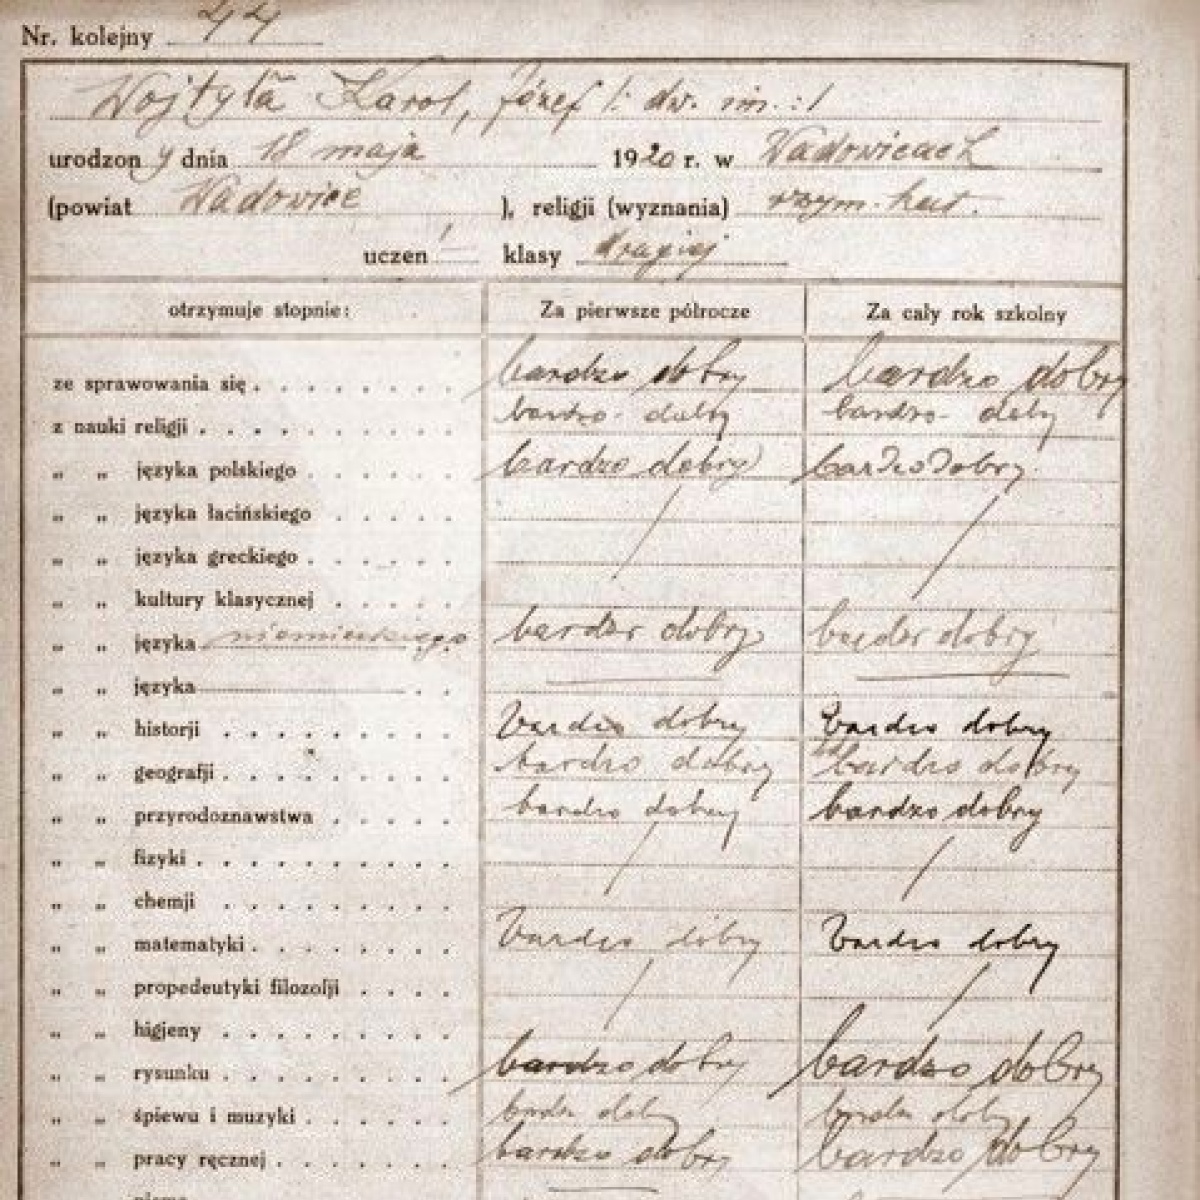 Nr. kolejny 44
Wojtyła Karol, Józef /: dw. im. :/
urodzony dnia 18 maja 1920 r. w Wadowicach
(powiat Wadowice ), religji (wyznania) rzym. kat.
uczeń klasy drugiej
otrzymuje stopnie: Za pierwsze półrocze Za cały rok szkolny
ze sprawowania się . . . . . . . . bardzo dobry bardzo dobry
z nauki religji . . . . . . . . . . bardzo dobry bardzo dobry
„ „ języka polskiego . . . . . . bardzo dobry bardzo dobry
„ „ języka łacińskiego . . . . .
„ „ języka greckiego . . . . . .
„ „ kultury klasycznej . . . . .
„ „ języka niemieckiego bardzo dobry bardzo dobry
„ „ języka . .
„ „ historji . . . . . . . . . bardzo dobry bardzo dobry
„ „ geografji . . . . . . . . . bardzo dobry bardzo dobry
„ „ przyrodoznawstwa . . . . . bardzo dobry bardzo dobry
„ „ fizyki . . . . . . . . . .
„ „ chemji . . . . . . . . .
„ „ matematyki . . . . . . . . bardzo dobry bardzo dobry
„ „ propedeutyki filozofji . . . .
„ „ higjeny . . . . . . . . .
„ „ rysunku . . . . . . . . . bardzo dobry bardzo dobry
„ „ śpiewu i muzyki . . . . . . bardzo dobry bardzo dobry
„ „ pracy ręcznej . . . . . . . bardzo dobry bardzo dobry